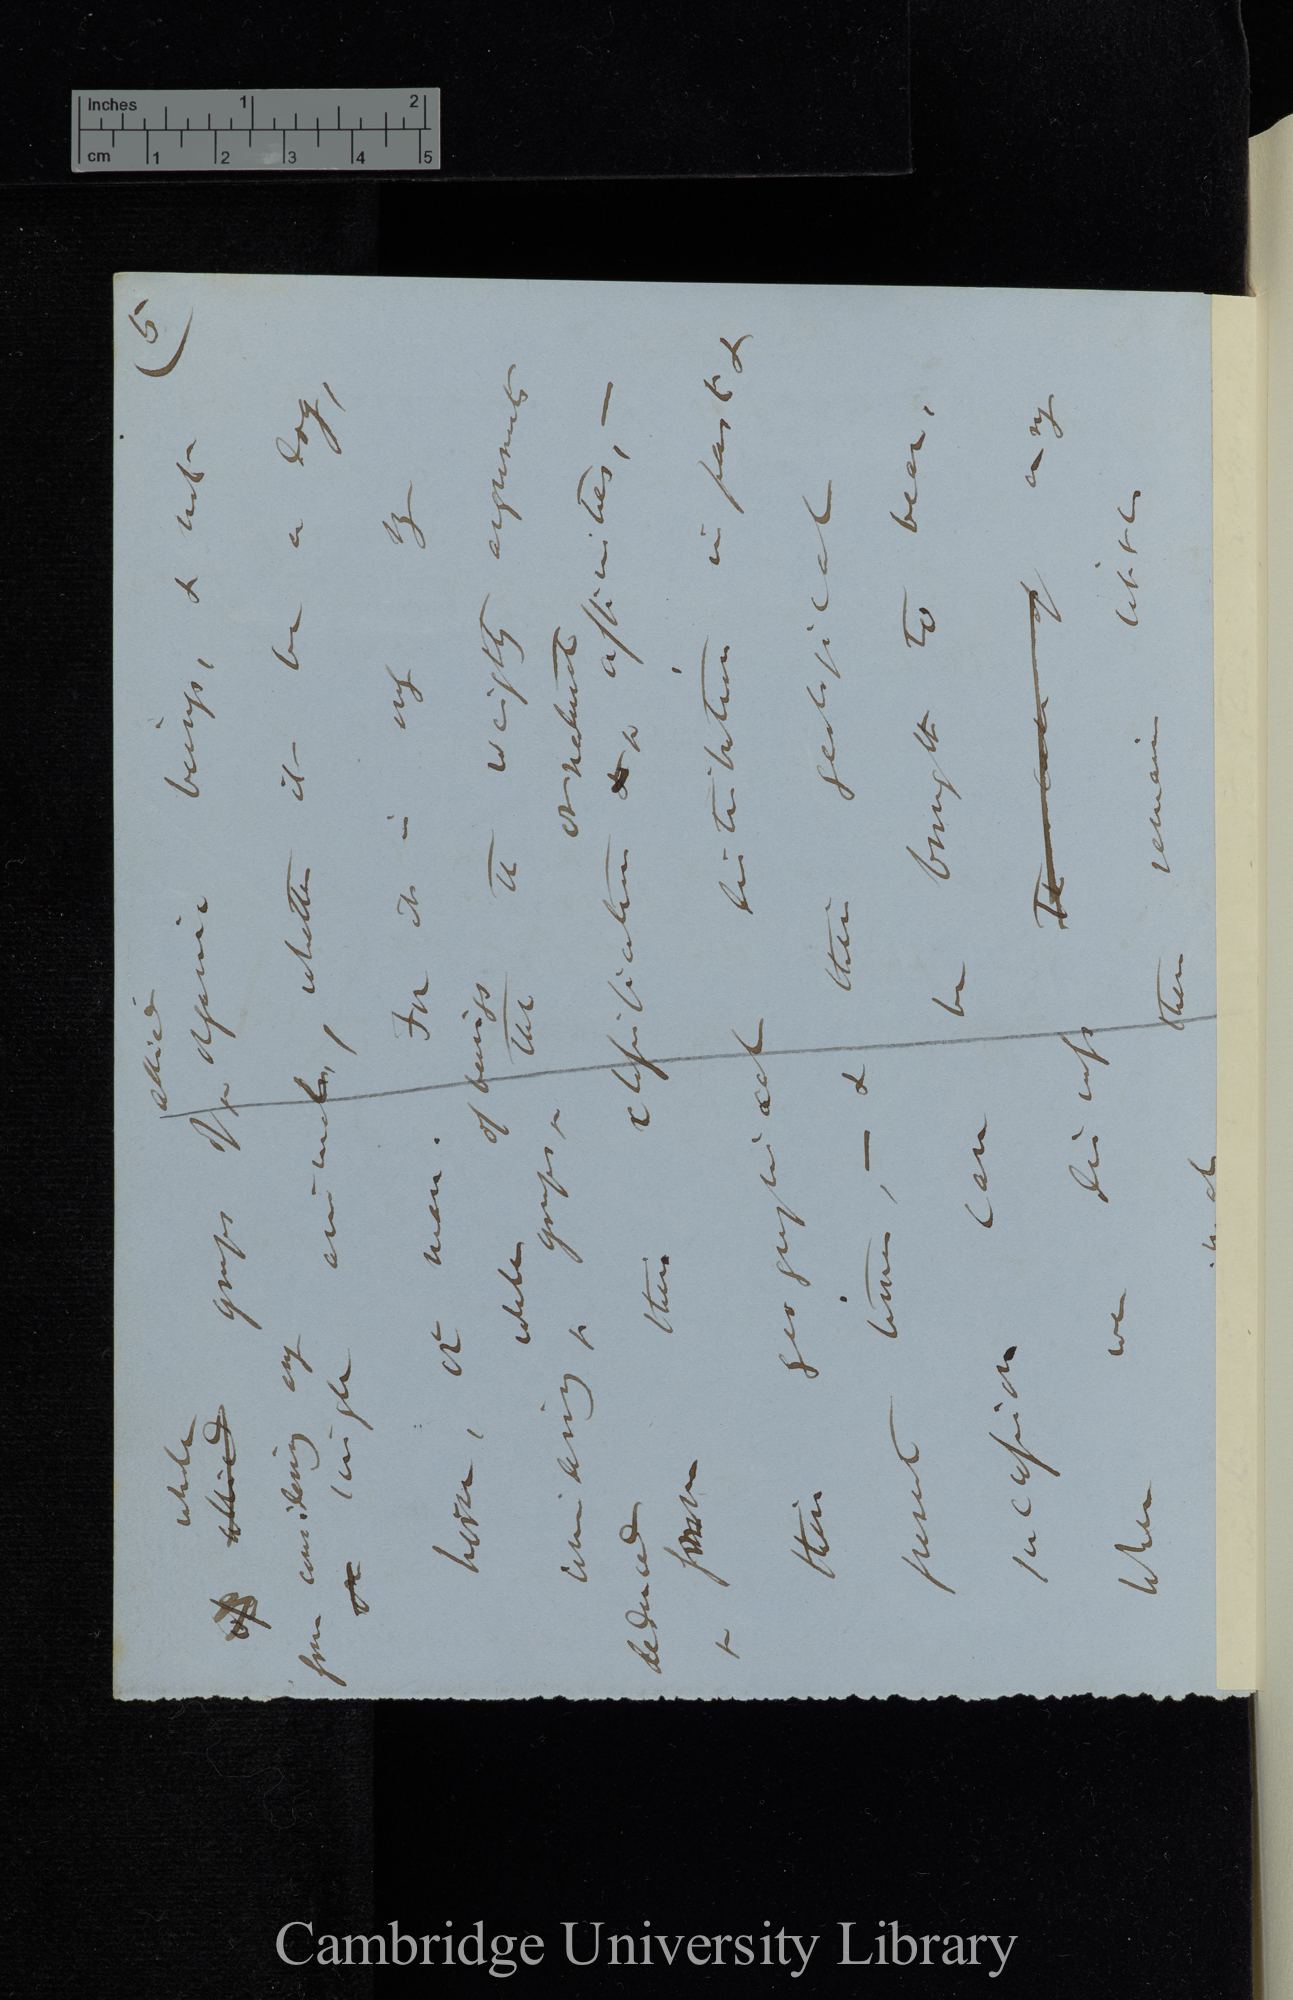 Inches 1 2
cm 1 2 3 4 5
(5
whole allied
of allied groups of organic beings, & not
from considering any
or single animal, whether it be a dog,
horse, or man. For it is only by
whole of beings
considering groups, that the weighty arguments
deduced or natural
from their classification & affinities, —
their geographical distribution in past &
present times, — & their geological
succession can be brought to bear.
When we discuss The case of any
there remain little
Cambridge University Library